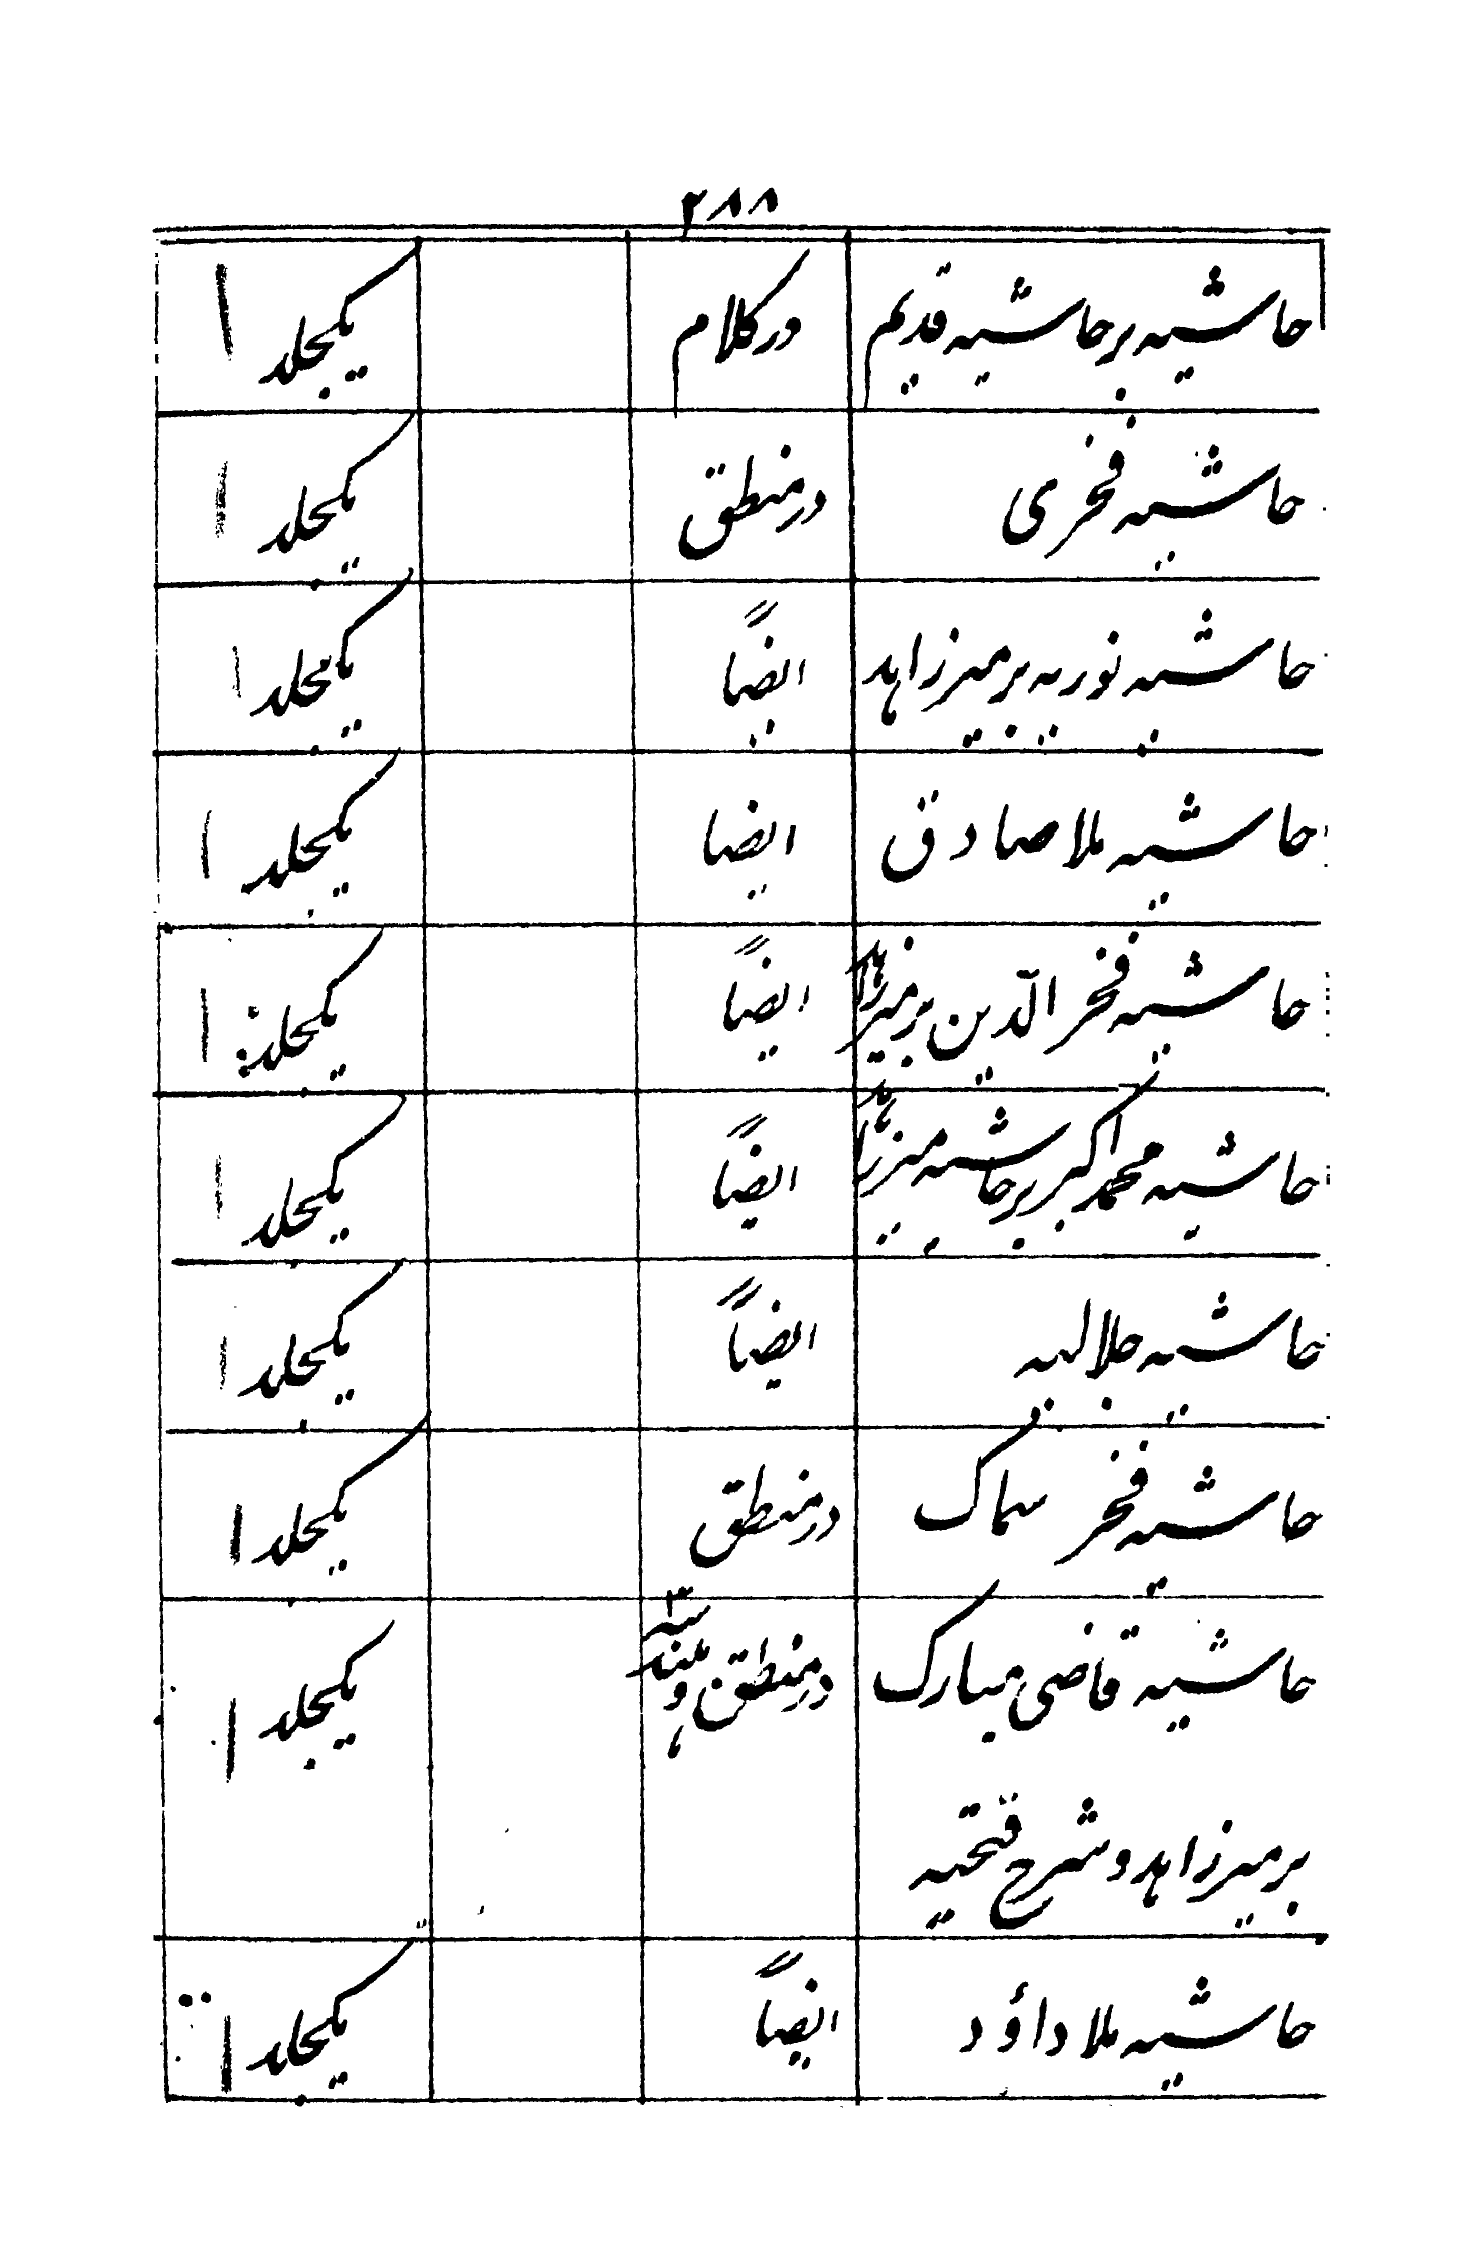 ۲۸۸
حاشیہ بر حاشیہ قدیم در کلام یکجلد ۱
حاشیہ فخری در منطق یکجلد ۱
حاشیہ نوریہ بر میرزاہد ایضاً یکجلد ۱
حاشیہ ملا صادق ایضا یکجلد ۱
حاشیہ فخر الدین بر میرزاہد ایضاً یکجلد ۱
حاشیہ محمد اکبر بر حاشیہ میرزاہد ایضاً یکجلد ۱
حاشیہ جلالیہ ایضاً یکجلد ۱
حاشیہ فخر سماک در منطق یکجلد ۱
حاشیہ قاضی مبارک در منطق و یکجلد ۱
بر میرزاہد و شرح فتحیہ
حاشیہ ملا داؤد ایضاً یکجلد ۱